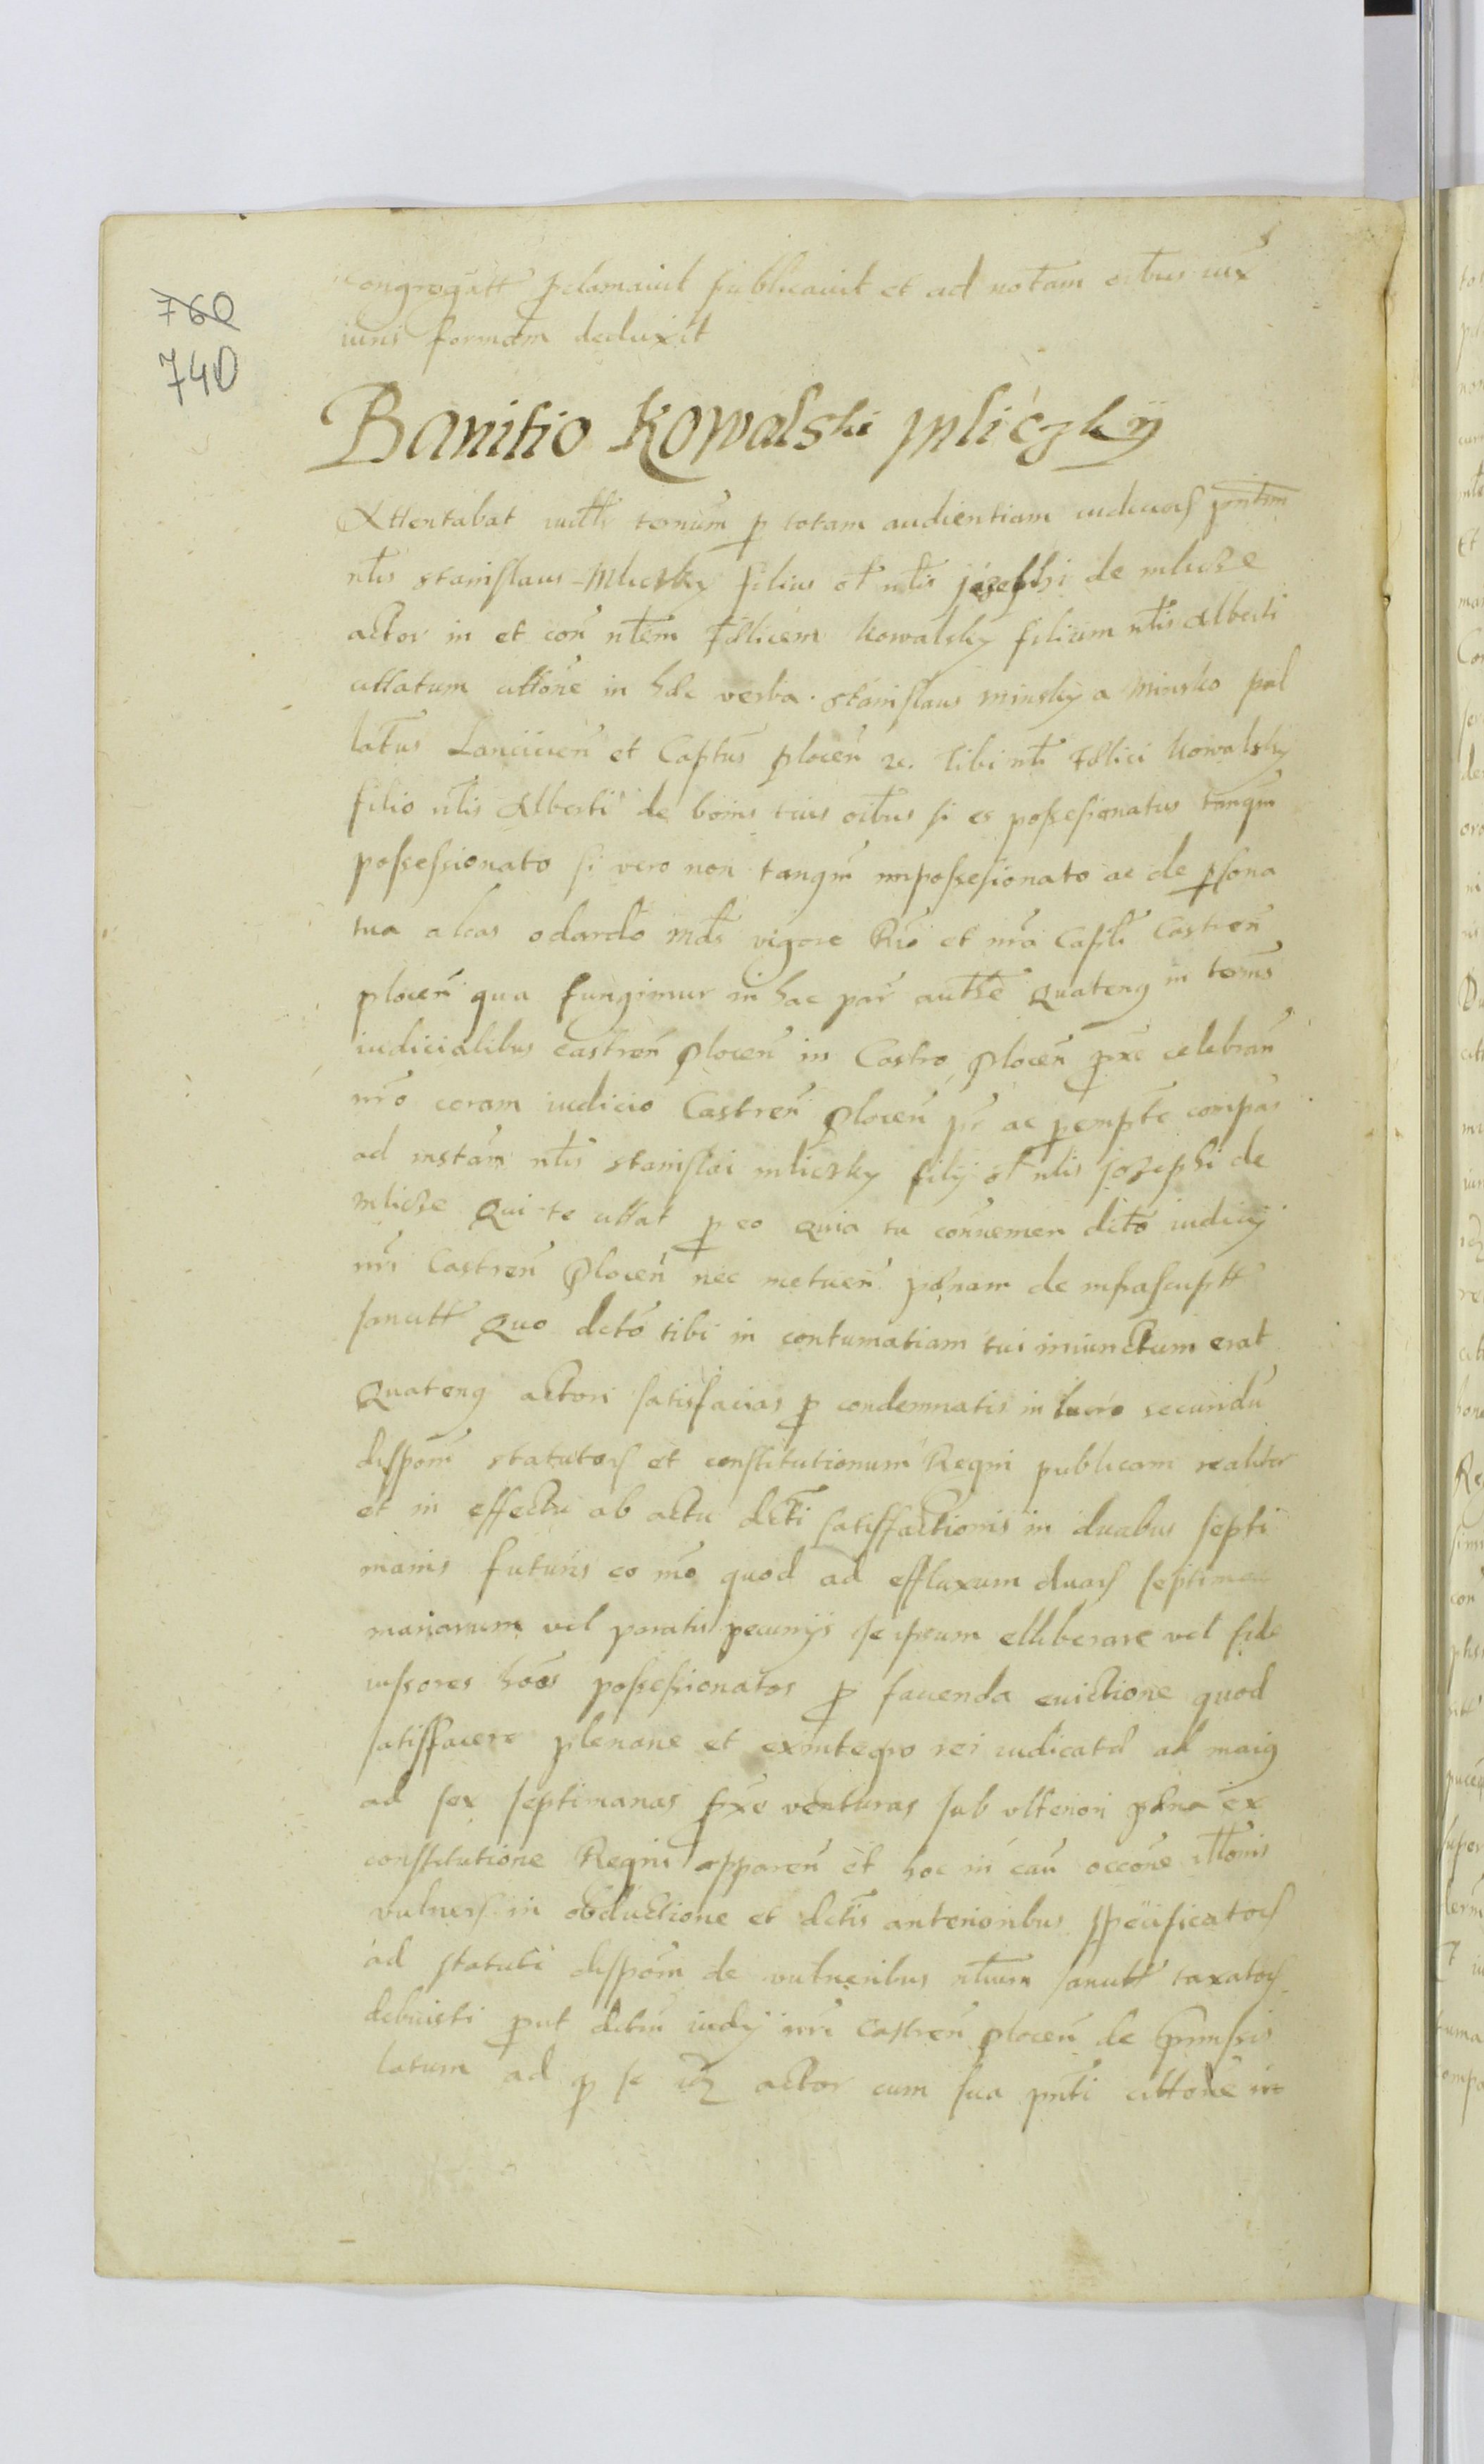 760
740
congregatt pclamavit publicavit et ad notam oibus iux
iuris formam deduxit
Banitio Kowalski Mliczkÿ
Attentabat iudtr termnum p totam audientiam iudiciorʃ pntem
nłis Stanislaus Mliczky filius oł nłis Jozephi de Mlicze
actor in et con nłem Fælicem Kowalsky filium nłis Alberti
cittatum cittone in hæc verba. Stanislaus Minsky a Minsko pal
latus Lanciicien et Captus Plocen &c. Tibi nłi Fælici Kowalsky
filio nłis Alberti de bonis tuis oibus si es possesionatus tanqm
possessionato si vero non tanqm impossesionato ac de psona
tua alias odardo mds vigore Rio et nra Capłi Castren
plocen qua fungimur in hac par authe Quateng in termis
iudicialibus castren Plocen in Castro Plocen pxe celebran
nro coram iudicio Castren Plocen pr ac pempte compas
ad instan nłis Stanislai Mliczky filij oł nłis Jozephi de
Mlicze Qui te cittat p eo Quia tu convemen dicto iudicij
nri Castren Plocen nec metuen pænam de infrascriptt
sancitt Quo dcto tibi in contumatiam tui iniunctum erat
Quateng actori satisfacias p condemnatis in lucro secundu
dispom statutorʃ et constitutionum Regni publicam realiter
et in effectu ab actu dcti satisfactionis in duabus septi
manis futuris eo mo quod ad effluxum duarʃ septima
manarum vel paratis pecunijs se ipsum elliberare vel fide
iussores hoes possessionatos p favenda evictione quod
satisfacere plenarie et exintegro rei iudicatæ ad maig
ad sex septimanas pxe venturas sub ulteriori pæna ex
constitutione Regni apparen et hoc in cau occone
vulnerʃ in obductione et dctis anterioribus specificatorʃ
ad statuti dispom de vulneribus nłium sancitt taxatorʃ
debuisti put dctm iudij nri Castren plocen de pmissis
latum ad q se idz actor cum sua pnti cittone in